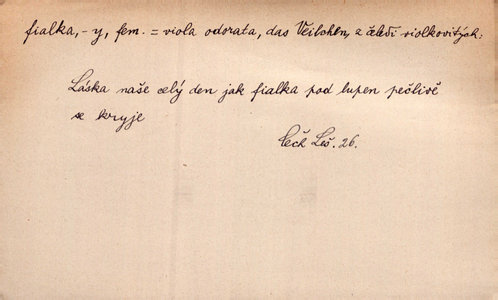 fialka, -y, fem. = viola odorata, das Veilchen, z čeledi violkovitých:
Láska naše celý den jak fialka pod lupen pečlivě
se kryje
Čech Leš. 26.